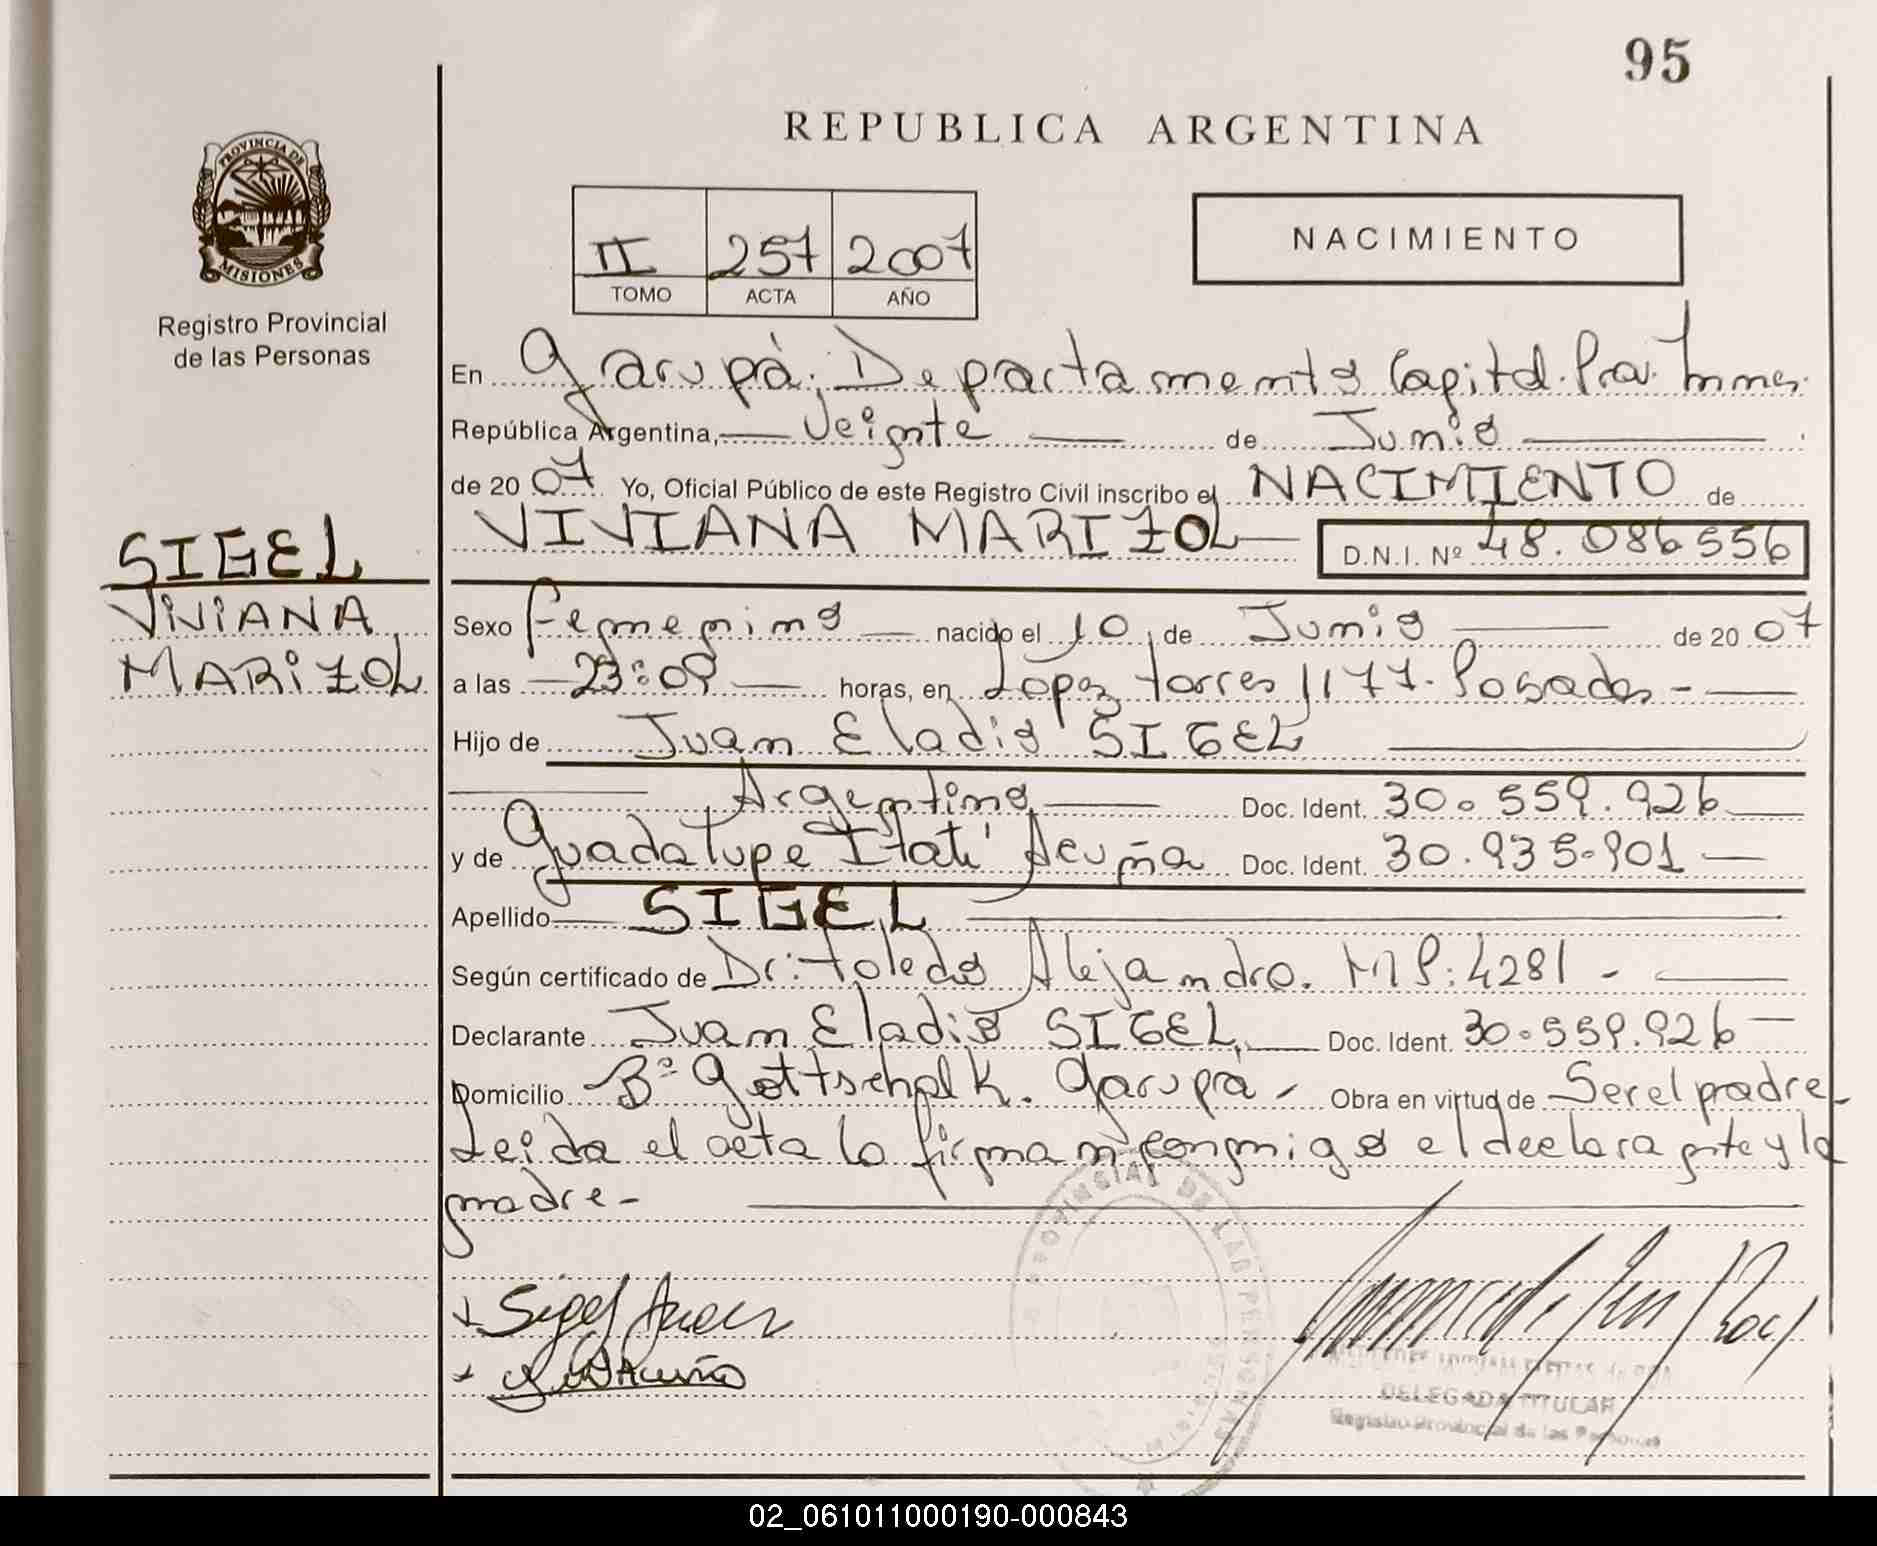 95
REPUBLICA ARGENTINA
PROVINCIA DE
MISIONES
Registro Provincial
de las Personas
II 257 2007
TOMO ACTA AÑO
NACIMIENTO
En Garupá. Departamento Capital. Prov. Mnes.
República Argentina, Veinte de Junio
de 2007 Yo, Oficial Público de este Registro Civil inscribo el NACIMIENTO de
VIVIANA MARIZOL D.N.I. Nº 48.086556
SIGEL
VIVIANA
MARIZOL
Sexo Femenino nacido el 10 de Junio de 2007
a las 23:09 horas, en Lopez Torres 1177. Posadas -
Hijo de Juan Eladio SIGEL
Argentino Doc. Ident. 30.559.926
y de Guadalupe Itatí Acuña Doc. Ident. 30.935.901
Apellido SIGEL
Según certificado de Dr: Toledo Alejandro. MP: 4281 -
Declarante Juan Eladio SIGEL, Doc. Ident. 30.559.926
Domicilio Bº Gottschalk. Garupa - Obra en virtud de Ser el padre
Leida el acta la firman conmigo el declarante y la
madre -
Sigel Juan
Acuña
PROVINCIAL DE LAS PERSONAS
DELEGADA TITULAR
Registro Provincial de las Personas
02_061011000190-000843